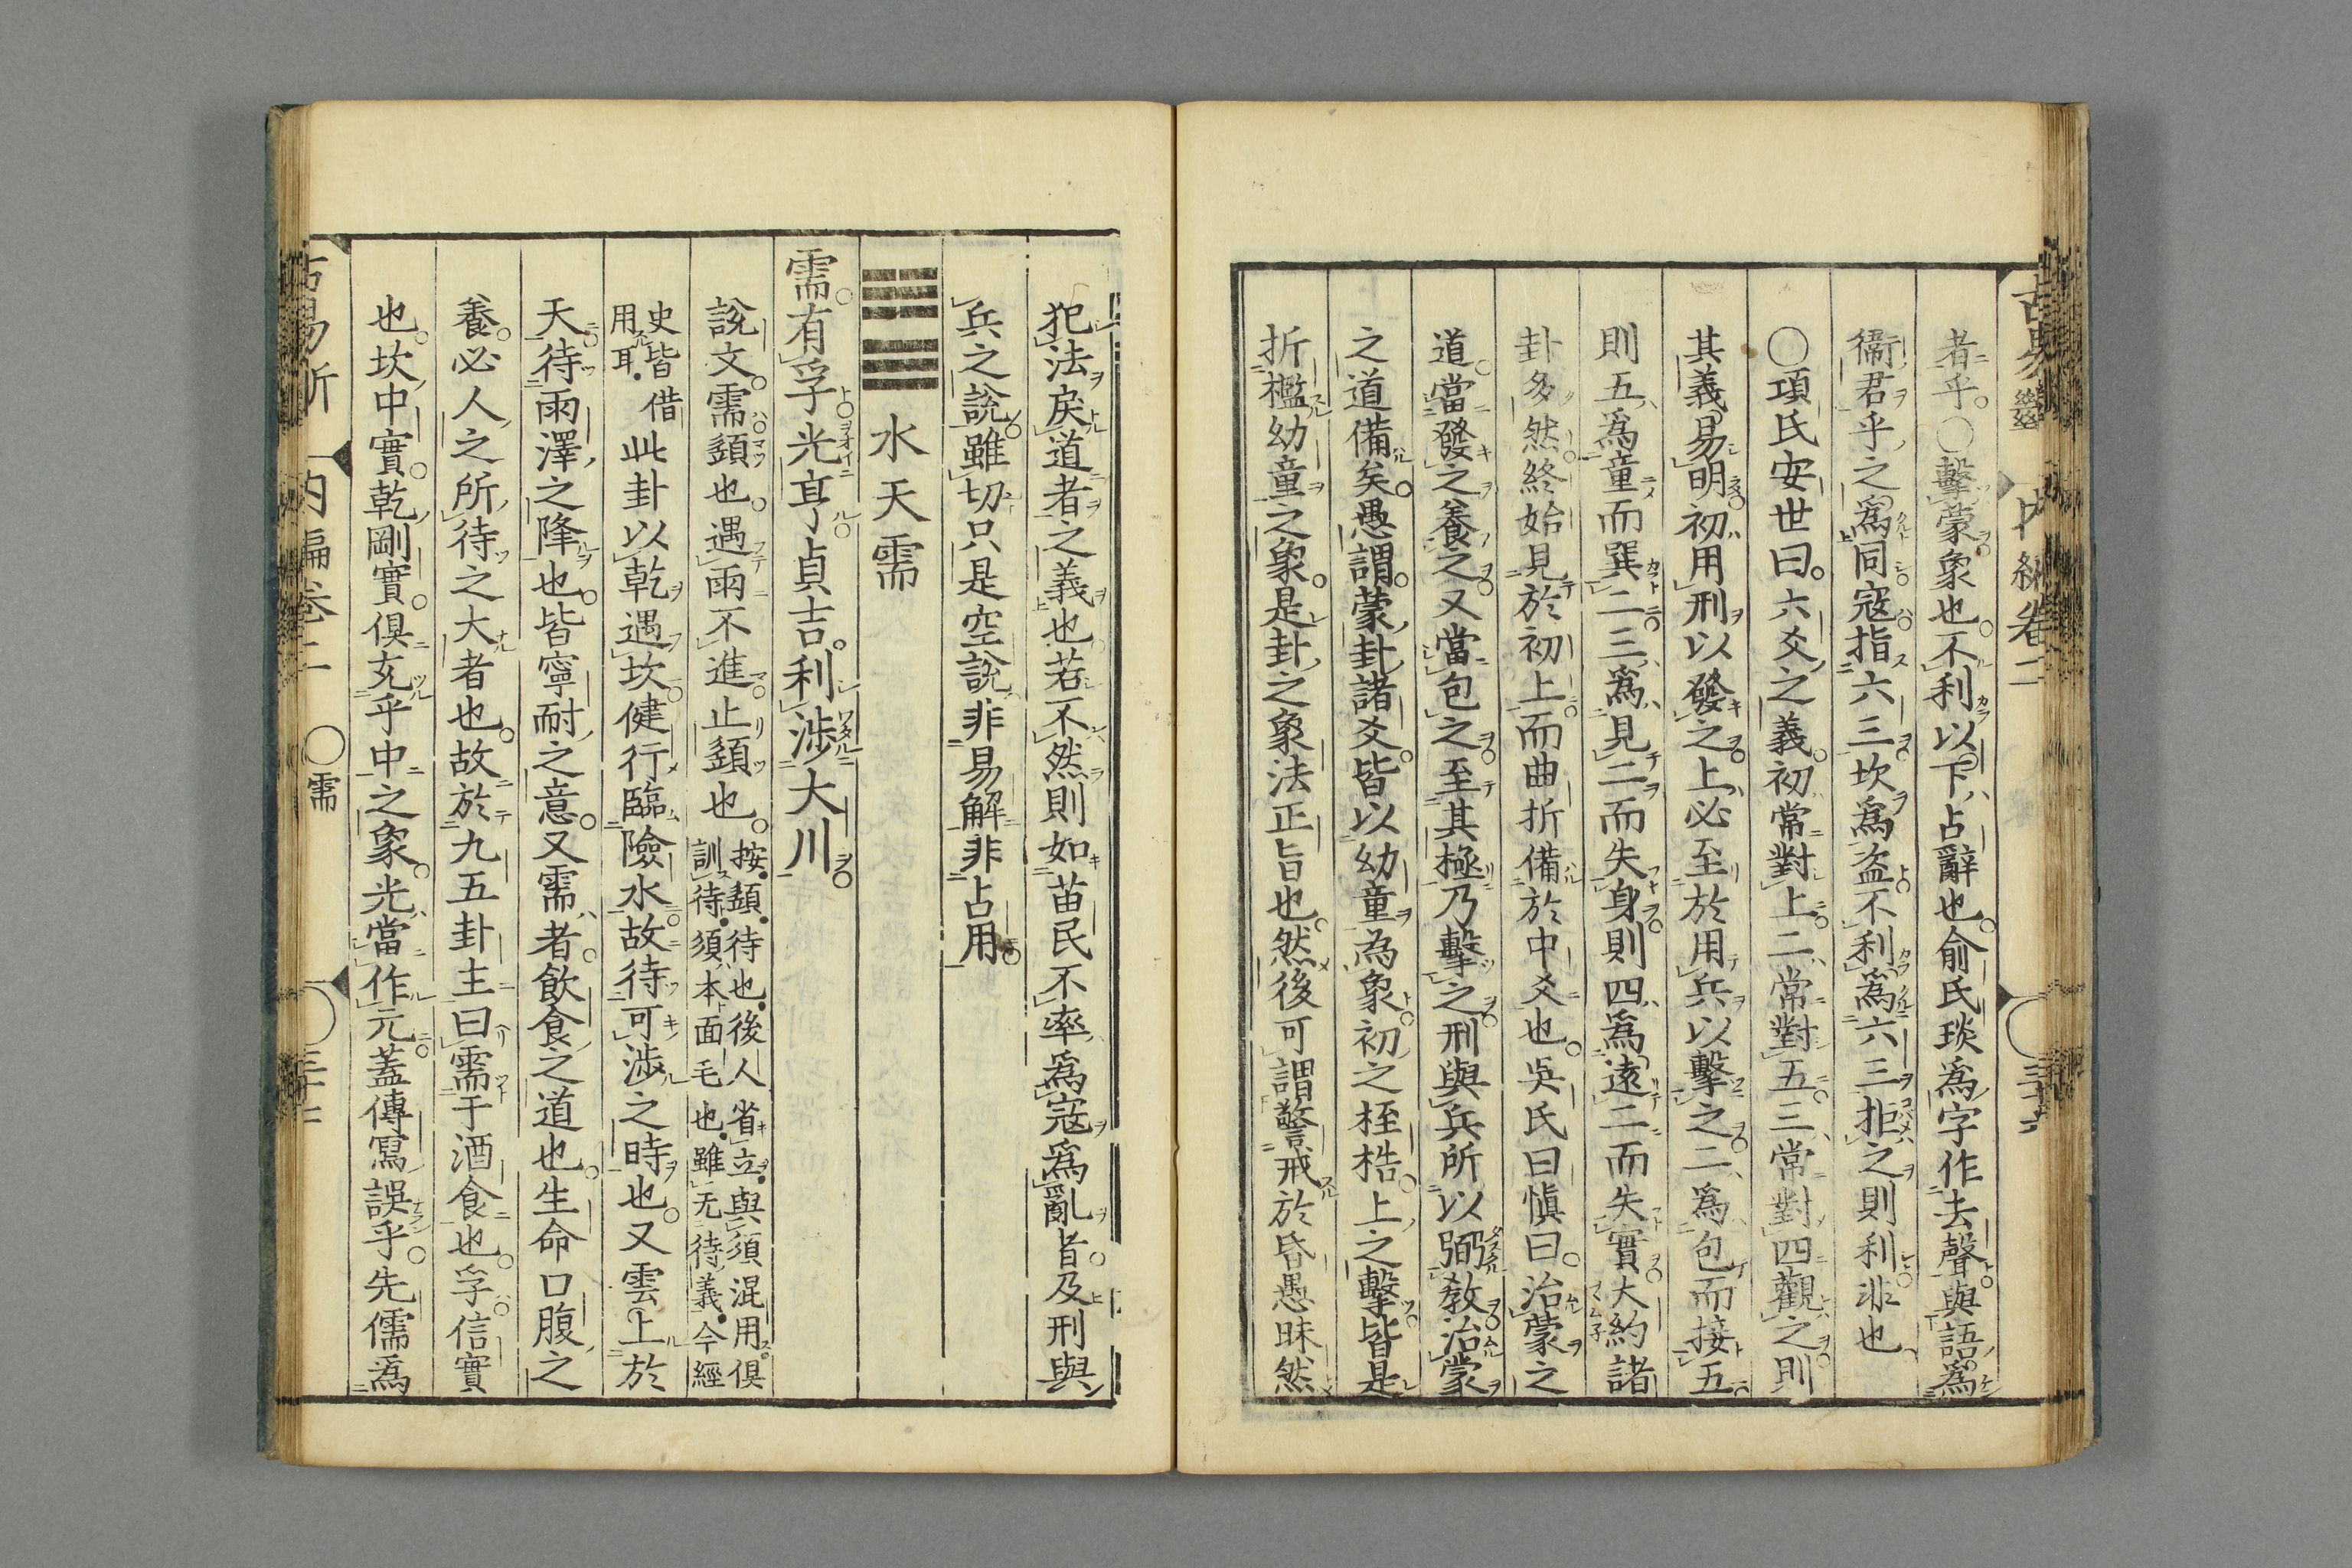 者乎。〇擊蒙象也。不利以下占辭也。俞氏琰爲字作去聲與語爲
衞君乎之爲同寇指六三坎爲盗不利爲六三拒之則利非也
〇項氏安世曰。六爻之義初常對上二常對五三常對四觀之則
其義易明初用刑以發之上必至於用兵以擊之二爲包而接五
則五爲童而巽二三爲見二而失身則四爲遠二而失實大約諸
卦多然終始見於初上而曲折備於中爻也。吳氏曰愼曰。治蒙之
道。當發之養之又當包之至其極乃擊之刑與兵所以弼教治蒙
之道備矣。愚謂蒙卦諸爻皆以幼童為象初之桎梏。上之擊皆是
折檻幼童之象。是卦之象法正旨也。然後可謂警戒於昏愚昧然
犯法戾道者之義也若不然則如苗民不率爲寇爲亂者。及刑與
兵之說雖切只是空說非易解非占用
水天需
需。有孚光亨貞吉。利涉大川
說文。需䇓也。遇雨不進止䇓也。按䇓。待也。後人省立。與須混用。俱
訓待。須。本面毛也。雖无待義。今經
史皆借
用耳。此卦以乾遇坎健行臨險水故待可涉之時也。又雲上於
天待雨澤之降也。皆寧耐之意。又需者。飲食之道也。生命口腹之
養。必人之所待之大者也。故於九五卦主曰需于酒食也。孚信實
也。坎中實。乾剛實。俱充乎中之象。光當作元。蓋傳寫誤乎。先儒爲
内編卷二 〇需